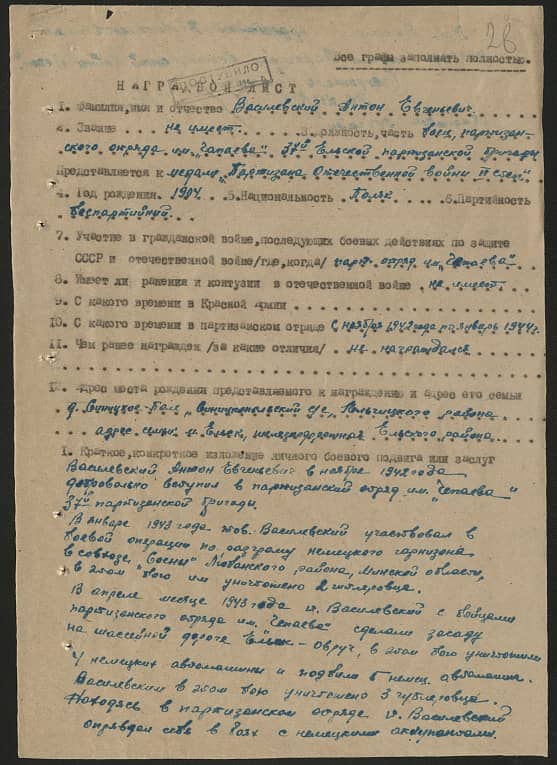 26
Все графы заполнать полностью.
ПОСТУПИЛО
НАГРАДНОЙ ЛИСТ
1. Фамилия,имя и отчество Василевский Антон Евгеньевич
2. Звание не имеет 3. должность,часть боец, партизан-
ского отряда им. "Чапаева" 37й Ельской партизанской бригады
Представляется к медали "Партизана Отечественной войны II степ."
4. Год рождения. 1904 5.Национальность Поляк 6.Партийность
беспартийный
7. Участие в гражданской войне,последующих боевых действиях по защите
СССР и отечественной войне/где,когда/ парт. отряд им. "Чепаева"
8. Имеет ли ранения и контузии в отечественной войне не имеет
9. С какого времени в Красной Армии
10. С какого времени в партизанском отряде с ноября 1942 года по январь 1944г.
11. Чем ранее награжден /за какие отличия/ не награждался
12. Адрес места рождения представляемого к награждению и адрес его семьи
д. с/с, района
адрес семьи м. Ельск, железнодорожная Ельского района
I. Краткое,конкретное изложение личного боевого подвига или заслуг
Василевский Антон Евгеньевич в ноябре 1942 года
добровольно вступил в партизанский отряд им. "Чепаева"
37й партизанской бригады.
В январе 1943 года тов. Василевский участвовал в
боевой операции по разгрому немецкого гарнизона
в совхозе "Сосны" Любанского района, Минской области,
в этом бою им уничтожено 2 гитлеровца.
В апреле месяце 1943 года т. Василевский с бойцами
партизанского отряда им. "Чепаева" сделали засаду
на шассейной дороге Ельск - Овруч, в этом бою уничтожили
4 немецких автомашины и подбили 5 немец. автомашин.
Василевским в этом бою уничтожено 3 гитлеровца.
Находясь в партизанском отряде т. Василевский
оправдал себя в боях с немецкими оккупантами.